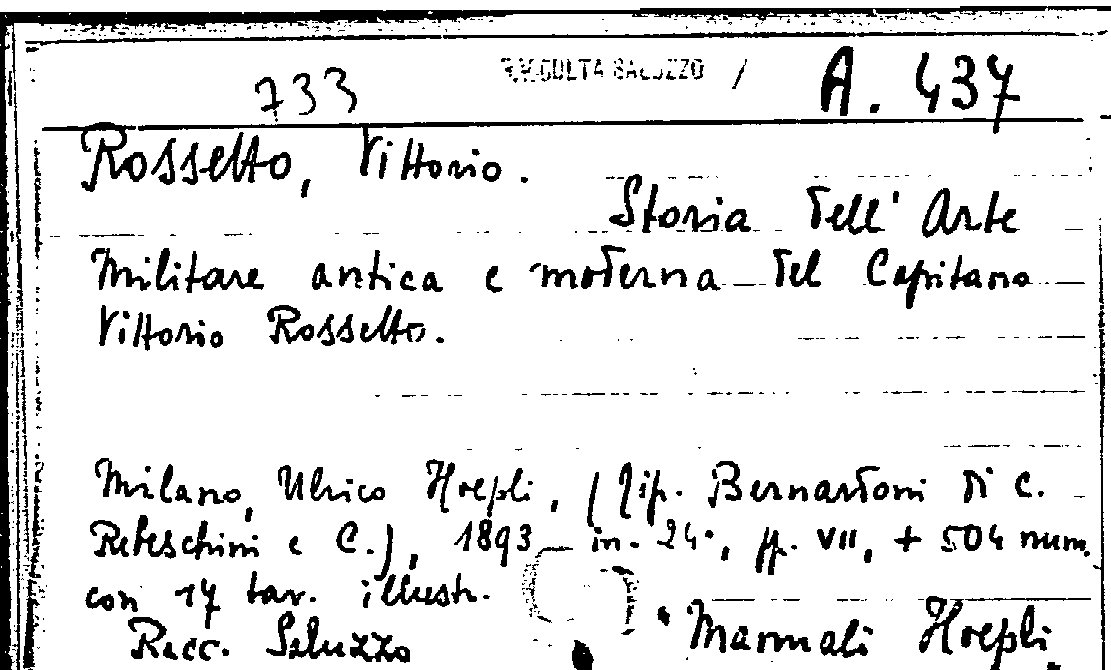 733 RACCOLTA SALUZZO / A. 437
Rossetto, Vittorio.
Storia dell' Arte
Militare antica e moderna del Capitano
Vittorio Rossetto.
Milano, Ulrico Hoepli, (Tip. Bernardoni di C.
Rebeschini e C.), 1893 in-24°, pp. VII, + 504 num.
con 17 tav. illustr.
Racc. Saluzzo Manuali Hoepli